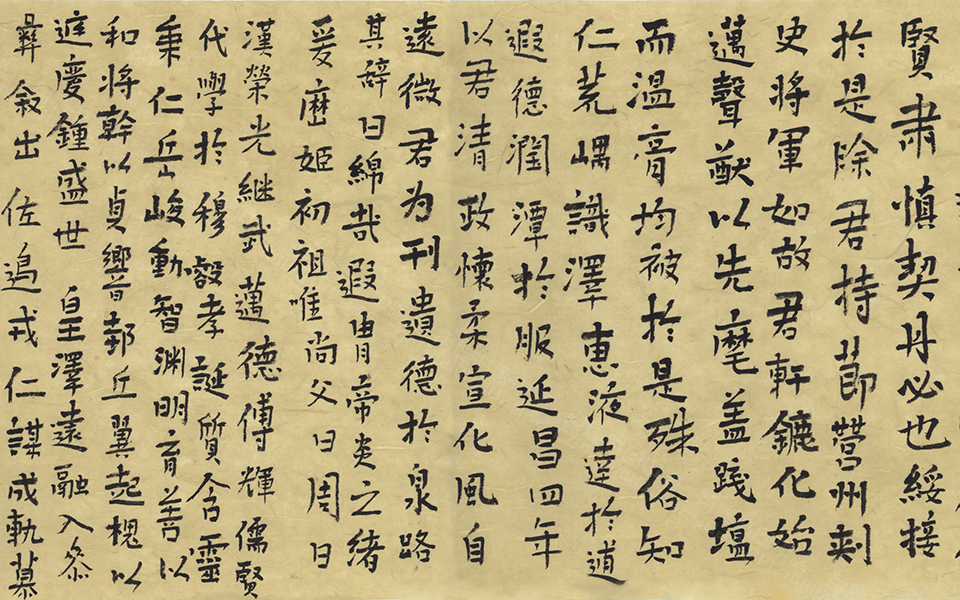 賢肅慎契丹必也綏接
於是除君持節營州刺
史將軍如故君軒鑣化始
邁聲猷以先麾盖踐壃
而溫膏均被於是殊俗知
仁荒嵎識澤惠液達於逋
遐德潤潭於服延昌四年
以君清政懷柔宣化風自
遠微君为刊遺德於泉路
其辞曰綿哉遐胄帝炎之緒
爰歷姬初祖唯尚父曰周曰
漢榮光継武邁德傅輝儒賢
代學於穆叡孝誕質含靈
秉仁岳峻動智渊明育善以
和将幹以貞響邦丘翼起槐以
庭慶鍾盛世皇澤遠融入參
彝敘出佐邊戎仁謀成軌慕